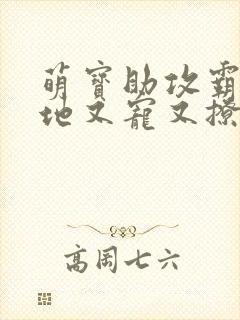 萌寶助攻霸
地又寵又撩
高周七六